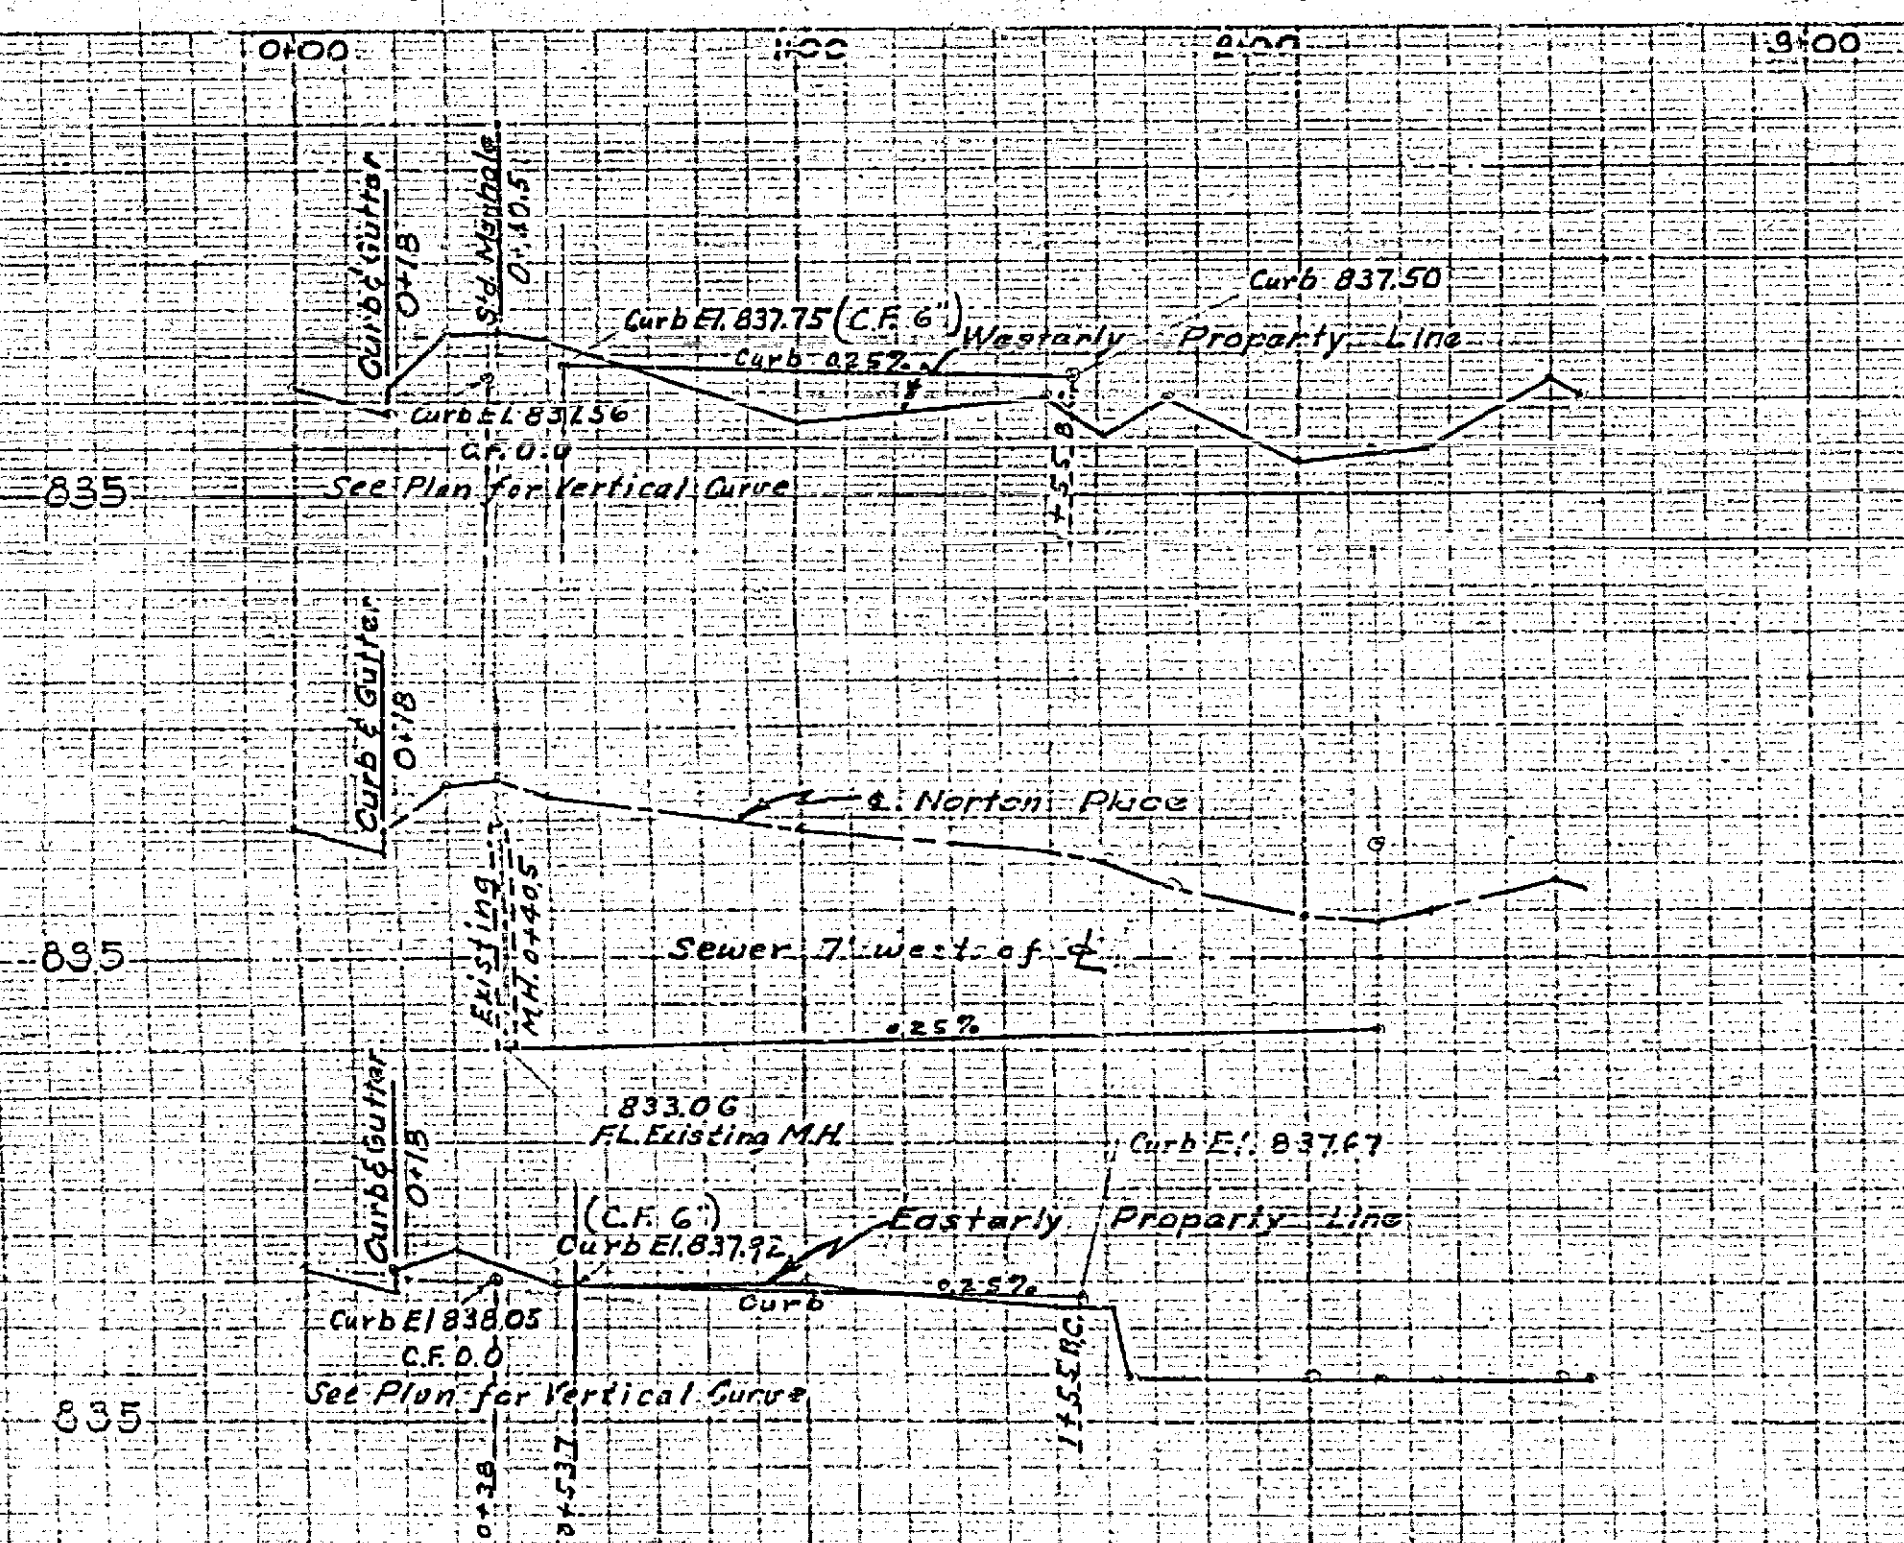 0+00 1+00 2+00 3+00
Curb & Gutter
0+18
Std Manhole
0+40.5
Curb 837.50
Curb El. 837.75 (C.F. 6")
Westerly Property Line
Curb 0.25%
Curb El.
C.F. 0.0
See Plan for Vertical Curve
835
1+55 B.C.
Curb & Gutter
0+18
℄ Norton Place
Existing
M.H. 0+40.5
835
Sewer 7' west of ℄
0.25%
833.06
F.L. Existing M.H.
Curb & Gutter
0+18
Curb El. 837.67
(C.F. 6")
Curb El. 837.92
Easterly Property Line
0.25%
Curb
Curb El 838.05
C.F. 0.0
See Plan for Vertical Curve
835
1+55 B.C.
0+38
0+53.7